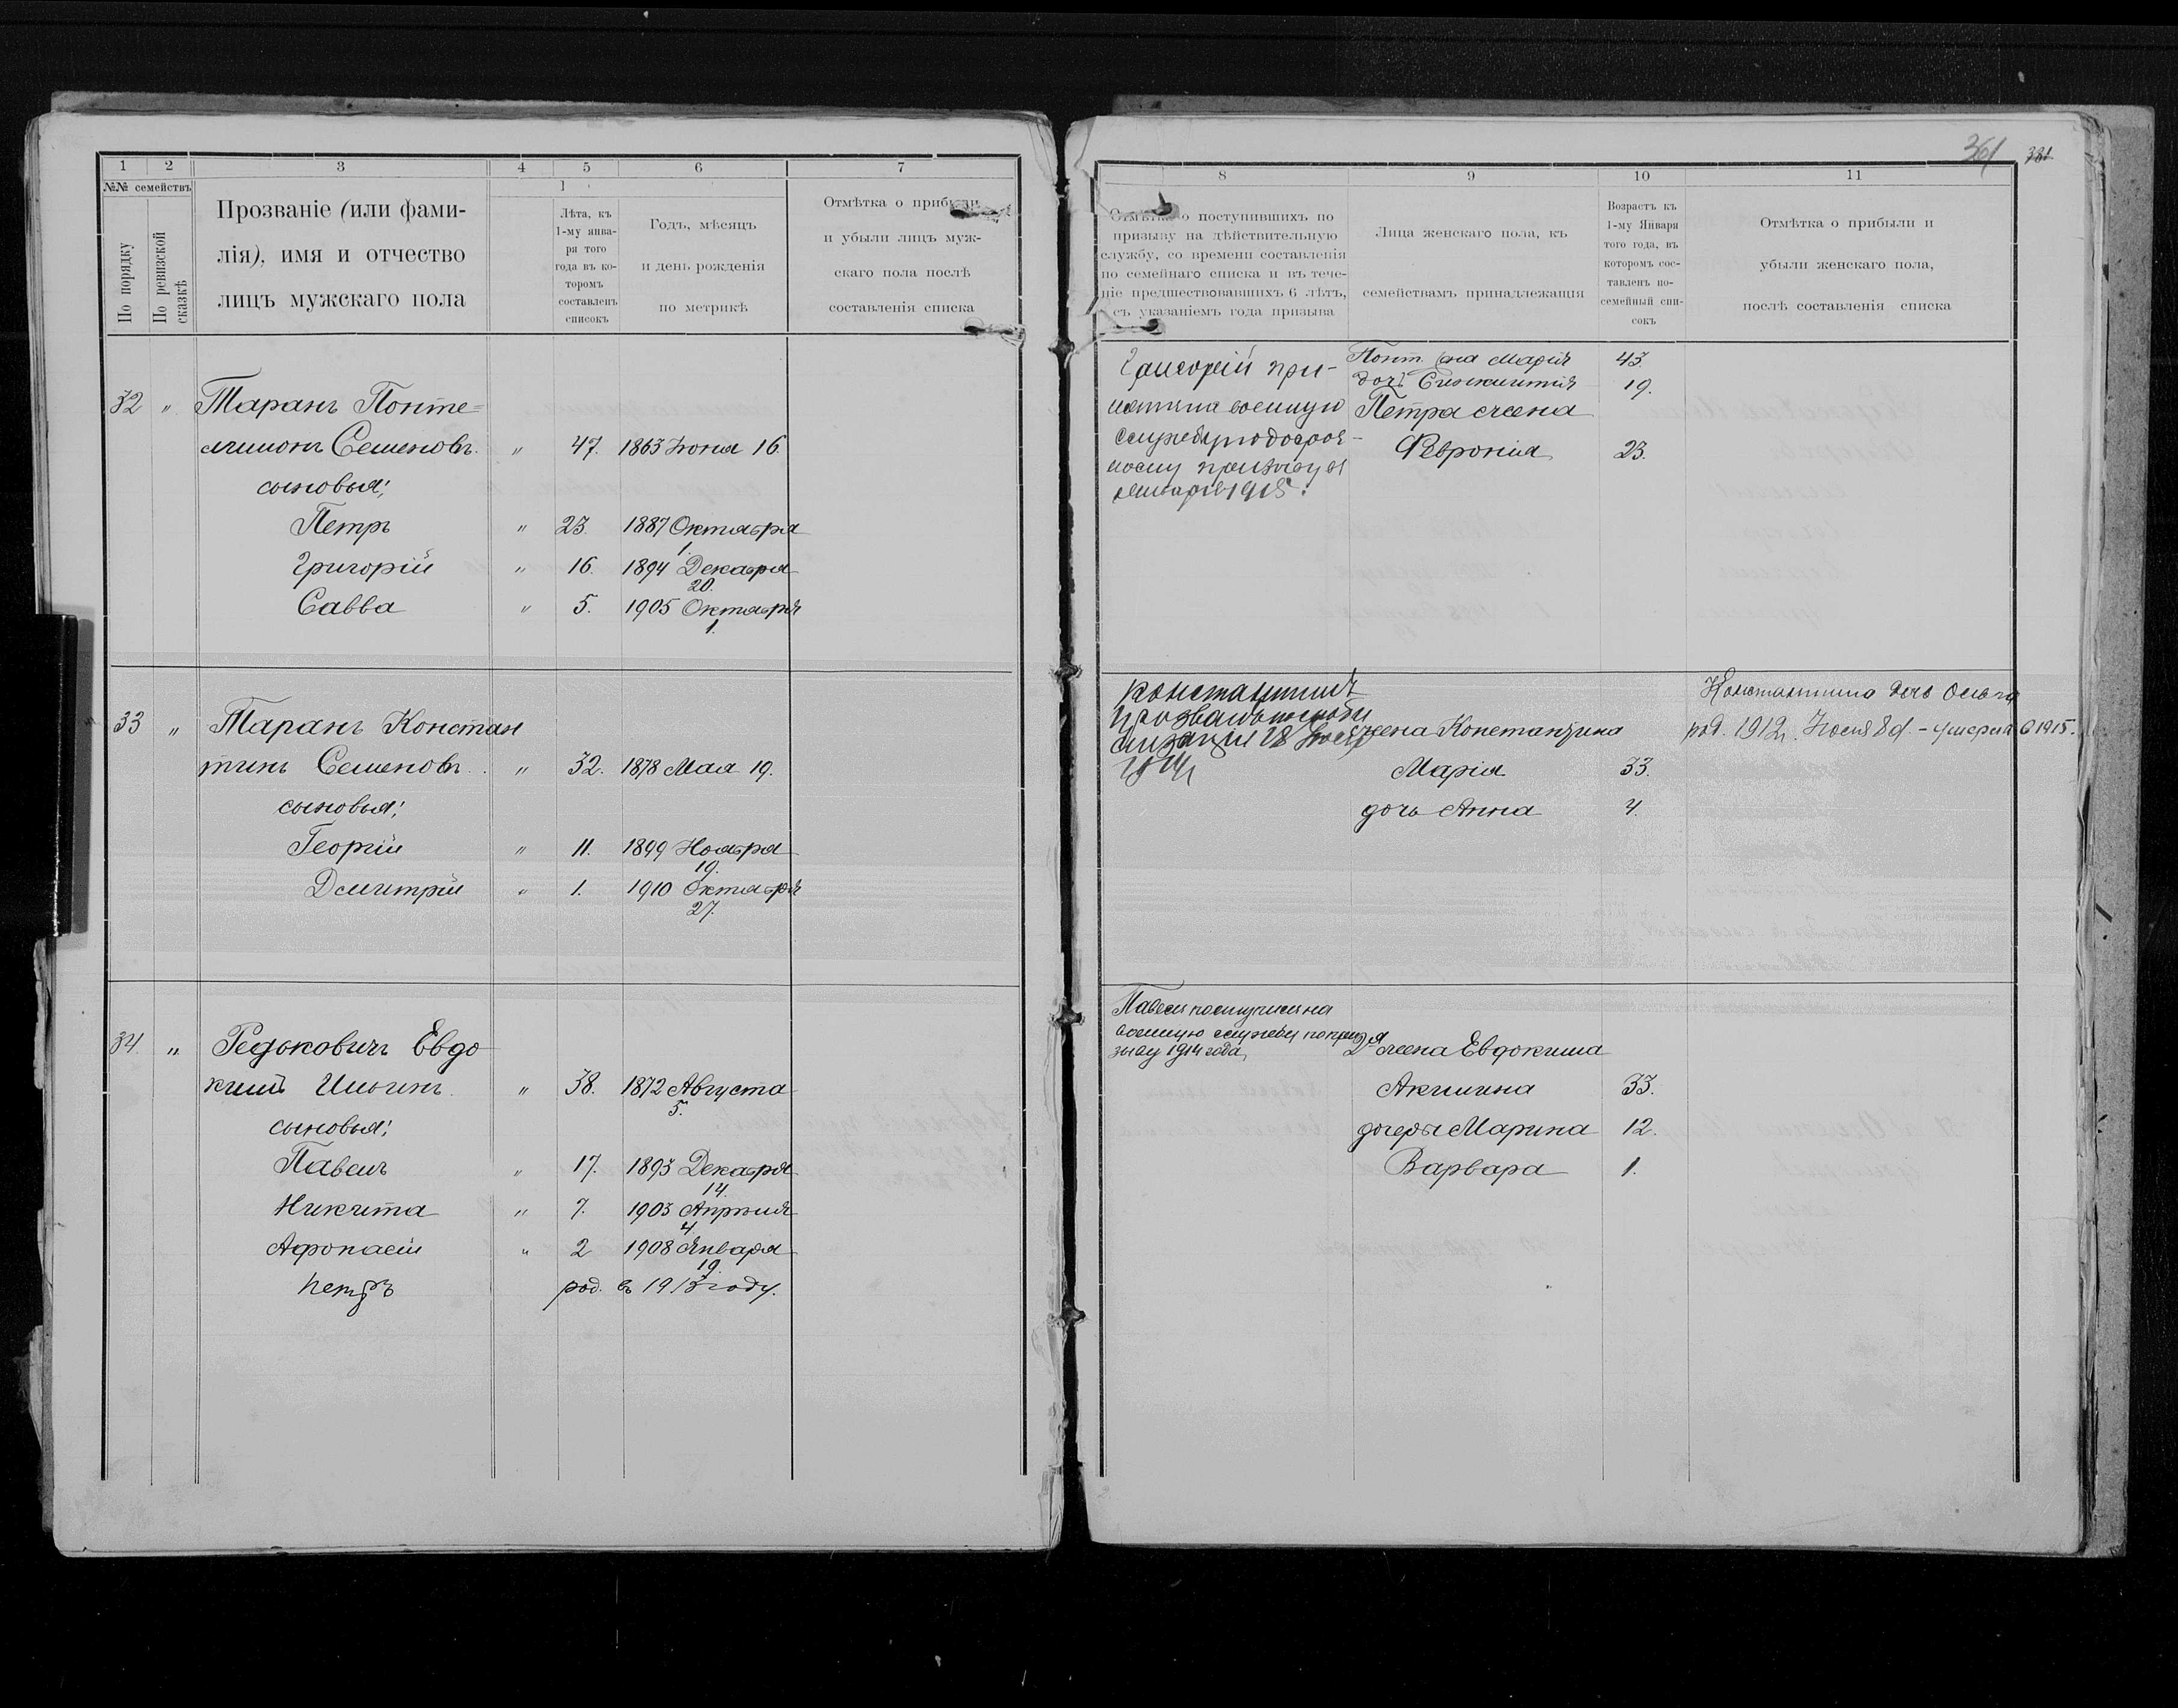 1 2 3 4 5 6 7
№№ семействъ
По порядку
По ревизской сказкѣ
Прозваніе (или фами-
лія), имя и отчество
лицъ мужскаго пола
Лѣта, къ
1-му янва-
ря того
года въ ко-
торомъ
составленъ
списокъ
Годъ, мѣсяцъ
и день рожденія
по метрикѣ
Отмѣтка о прибыли
и убыли лицъ муж-
скаго пола послѣ
составленія списка
32 " Таранъ Понте=
лимонъ Семеновъ. " 47. 1863 Іюня 16.
сыновья:
Петръ " 23. 1887 Октября
1.
Григорій " 16. 1894 Декабря
20.
Савва " 5. 1905 Октября
1.
33 " Таранъ Констан
тинъ Семеновъ. " 32. 1878 Мая 19.
сыновья:
Георгій " 11. 1899 Ноября
19.
Дмитрій " 1. 1910 Октября
27.
34. " Редьковичъ Евдо
кимъ Ильинъ. " 38. 1872 Августа
5.
сыновья:
Павелъ " 17. 1893 Декабря
14.
Никита " 7. 1903 Апрѣля
4
Афонасій " 2 1908 Января
19.
Петръ род. въ 1913 году.
361 381
8 9 10 11
Отмѣтка о поступившихъ по
призыву на дѣйствительную
службу, со времени составленія
по семейнаго списка и въ тече-
ніе предшествовавшихъ 6 лѣтъ,
съ указаніемъ года призыва
Лица женскаго пола, къ
семействамъ принадлежащія
Возрастъ къ
1-му Января
того года, въ
которомъ сос-
тавленъ по-
семейный спи-
сокъ
Отмѣтка о прибыли и
убыли женскаго пола,
послѣ составленія списка
Григорій при-
нятъ на военную
службу по досроч-
ному призыву въ
январѣ 1915.
Понт. жена Марія 43.
дочь 19.
Петра жена
Февронія 23.
Константинъ
призванъ по моби
лизаціи 18 Іюля
1914
жена Константина
Марія 33.
дочь Анна 4.
Константина дочь Ольга
род. 1912 г. Іюля 8 д. - умерла в 1915.
Павелъ поступилъ на
военную службу по при
зыву 1914 года,
2я жена Евдокима
Акилина 33.
дочеры Марина 12.
Варвара 1.